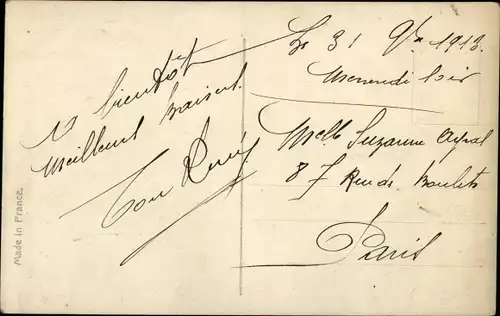 A bientôt
Meilleurs baisers
Ton René
Le 31 1913.
Mercredi soir
Melle Suzanne
87 Rue des Boulets
Paris
Made in France.